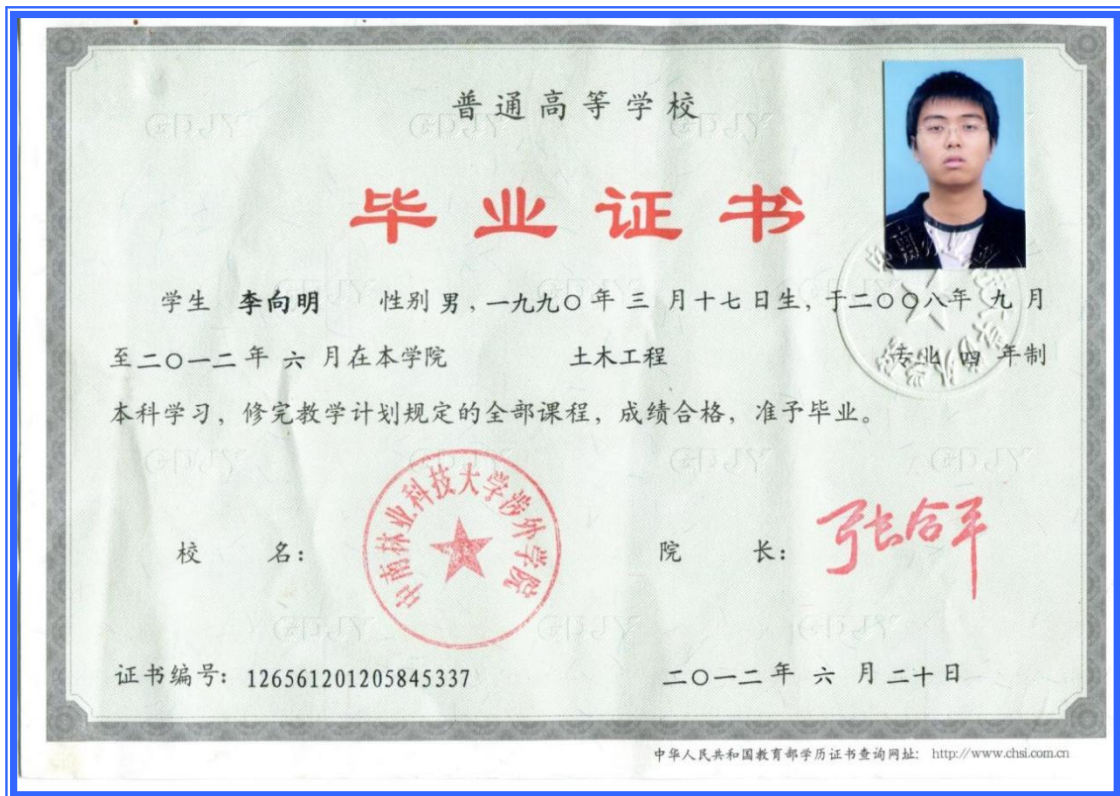 普通高等学校
毕业证书
学生 李向明 性别 男，一九九〇年 三 月十七日生，于二〇〇八年 九 月
至二〇一二年 六 月在本学院 土木工程 专业 四 年制
本科学习，修完教学计划规定的全部课程，成绩合格，准予毕业。
校 名： 中南林业科技大学涉外学院 院 长： 张合平
证书编号：126561201205845337 二〇一二年 六 月 二十日
中华人民共和国教育部学历证书查询网址： http://www.chsi.com.cn
GDJY GDJY GDJY
GDJY GDJY GDJY
GDJY GDJY GDJY